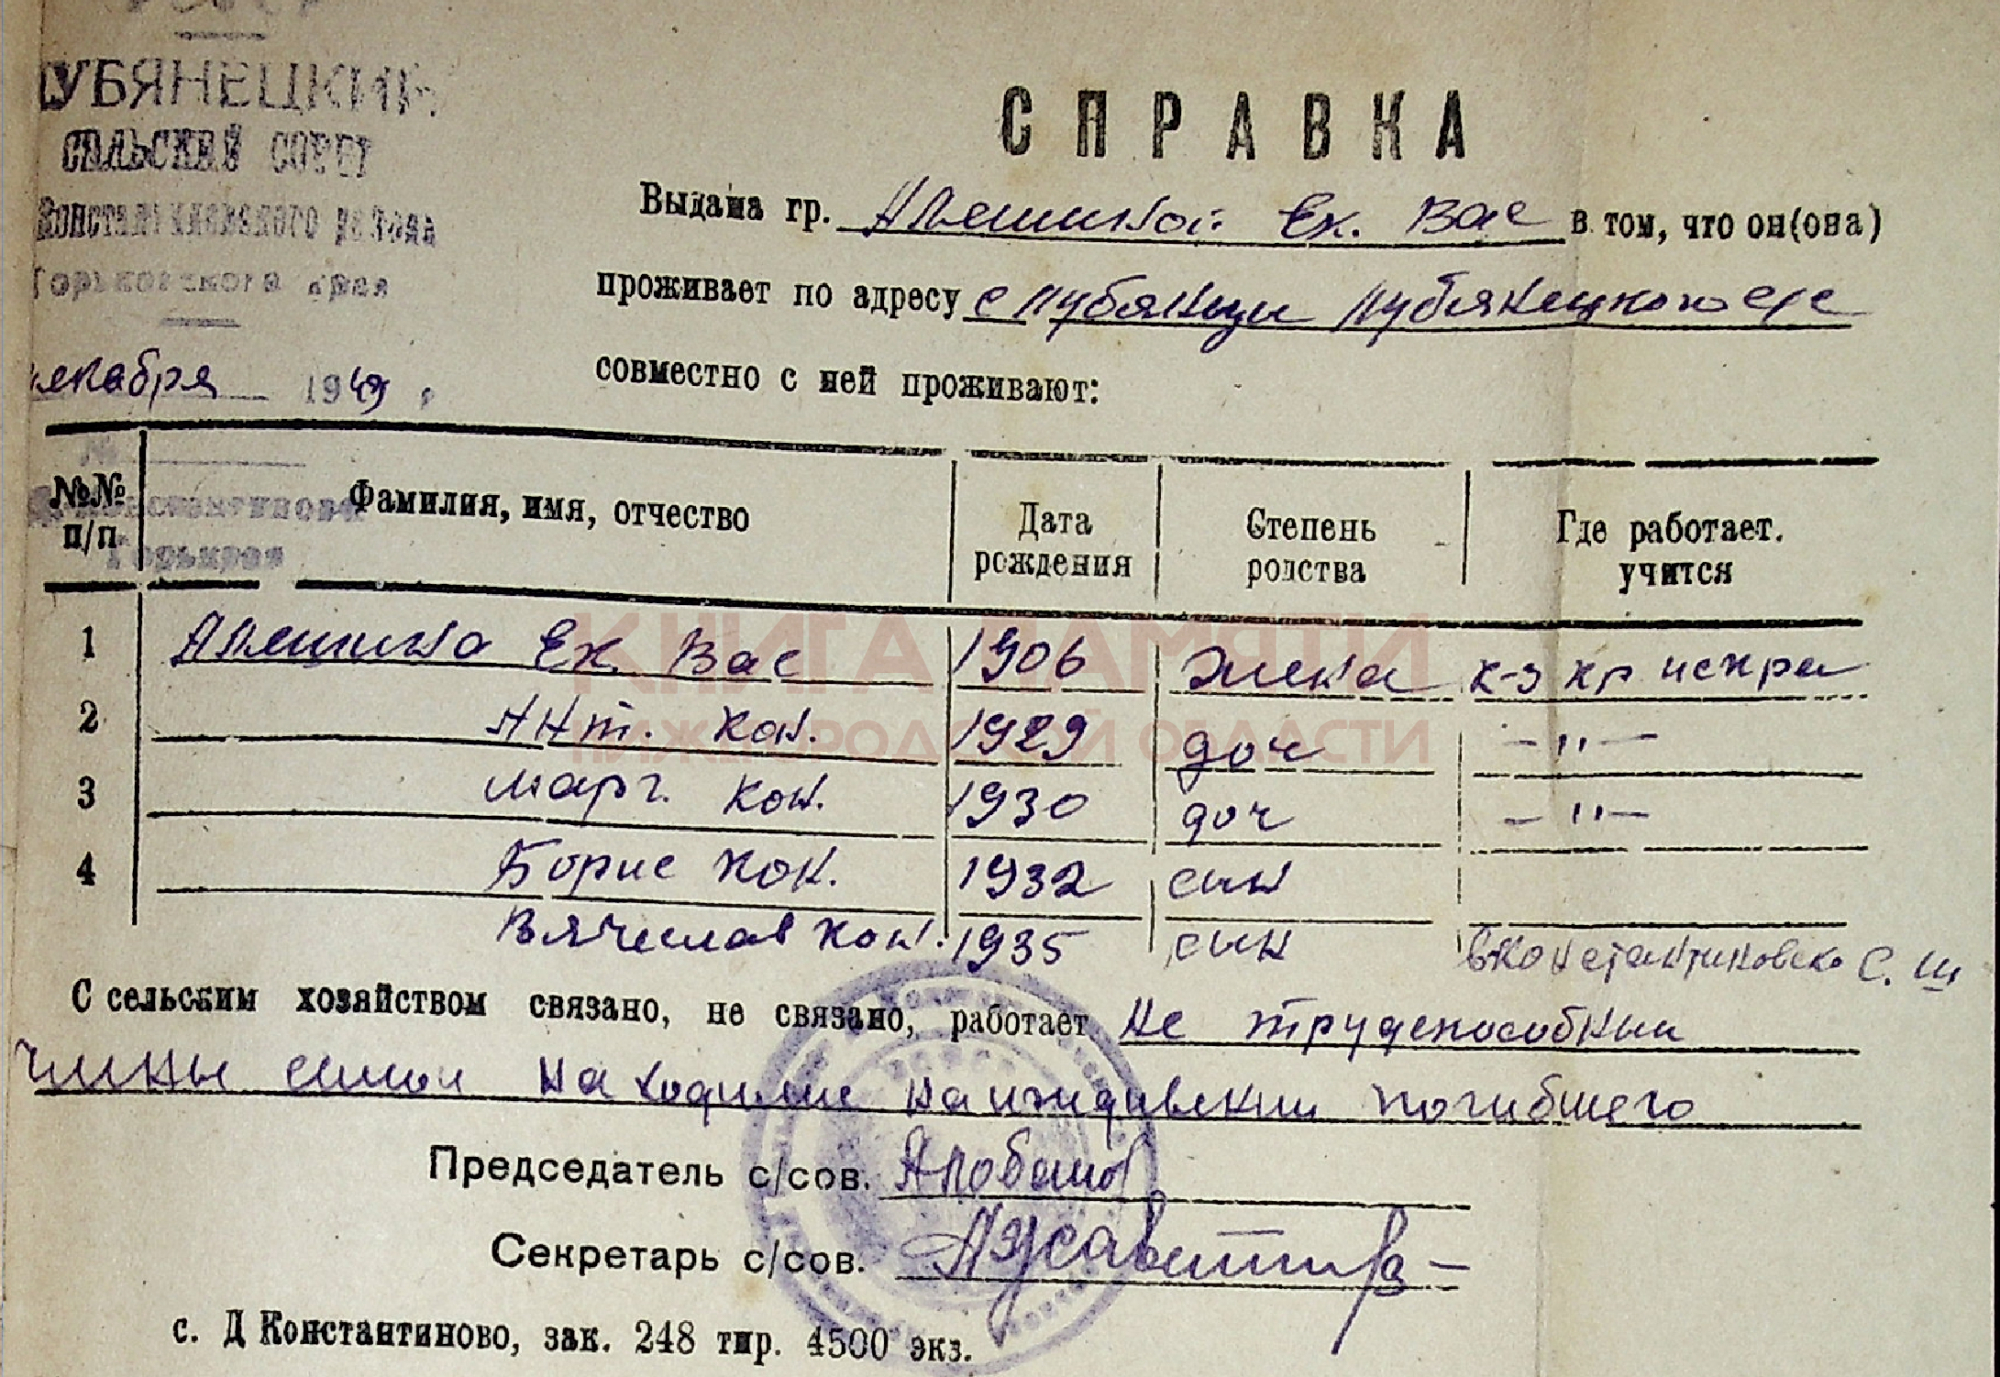 ЛУБЯНЕЦКИЙ
СЕЛЬСКИЙ СОВЕТ
Константиновского района
Горьковского края
декабря 1949 г.
СПРАВКА
Выдана гр. Алешиной Ек. Вас в том, что он(она)
проживает по адресу с Лубянцы Лубянецкого с/с
совместно с ней проживают:
№№ п/п
Фамилия, имя, отчество
Дата рождения
Степень родства
Где работает. учится
1 Алешина Ек Вас 1906 жена к-з кр искра
2 Ант. Кон. 1929 доч — " —
3 Марг. Кон. 1930 доч — " —
4 Борис Кон. 1932 сын
Вячеслав Кон. 1935 сын в Константиновско С. Ш
С сельским хозяйством связано, не связано, работает не трудспособныи
члины семьи находилис на иждивении погибшего
Председатель с/сов.
Секретарь с/сов.
с. Д Константиново, зак. 248 тир. 4500 экз.
КНИГА ПАМЯТИ
НИЖЕГОРОДСКОЙ ОБЛАСТИ